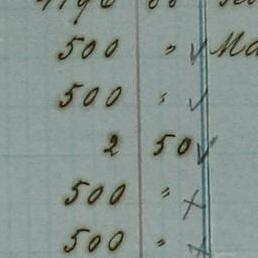 500 " ✓ Ma
500 " ✓
2 50 ✓
500 " x
500 " x